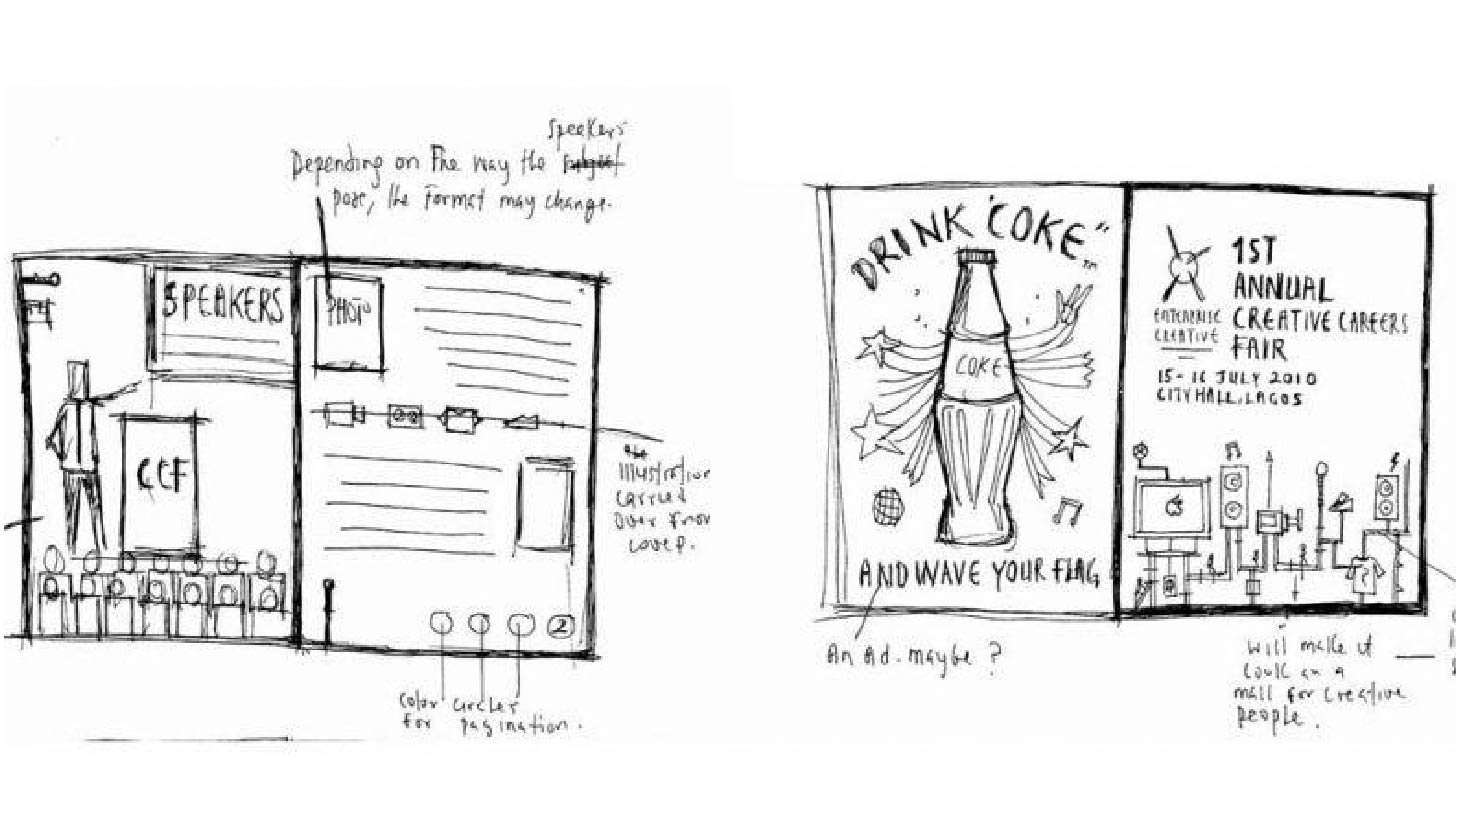 Speakers
Depending on the way the
pose, the format may change.
SPEAKERS
PHOTO
CCF
Illustration
carried
over from
cover.
2
color circles
for pagination.
DRINK "COKE"
TM
COKE
AND WAVE YOUR FLAG
An Ad. maybe ?
ENTERPRISE
CREATIVE
1ST
ANNUAL
CREATIVE CAREERS
FAIR
15 - 16 JULY 2010
CITY HALL, LAGOS
will make it
look
mall for creative
people.